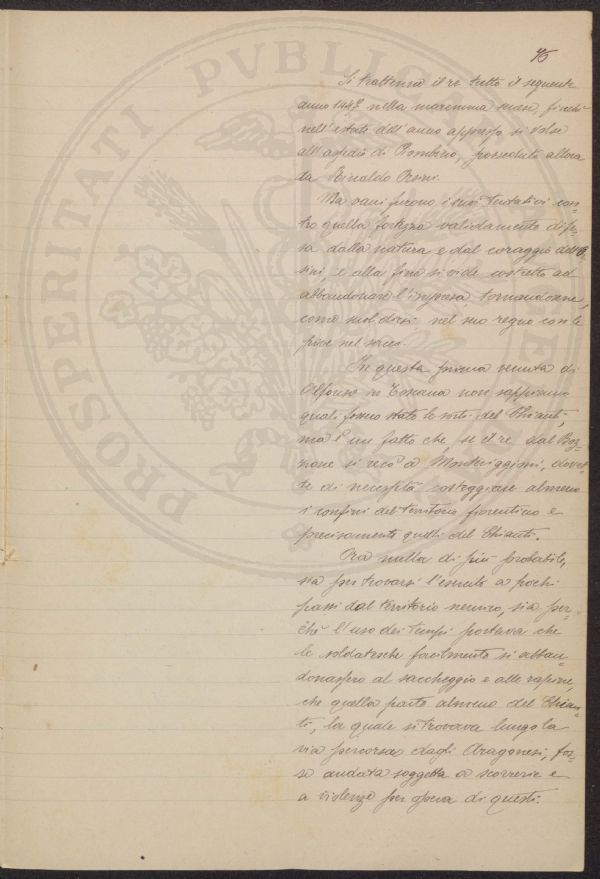 PROSPERITATI PVBLICAE
Si trattenne il re tutto il seguente
anno 1447 nella maremma
nell'estate dell'anno appresso si volse
all'assedio di Piombino, posseduto allora
da Rinaldo Orsini.
Ma vani furono i suoi tentativi con-
tro quella fortezza validamente dife-
sa dalla natura e dal coraggio dell'Or-
sini, e alla fine si vide costretto ad
abbandonare l'impresa, tornandosene,
come suol dirsi nel suo regno con le
pive nel sacco.
In questa prima venuta di
Alfonso in Toscana non sappiamo
quali fosse stato le sorti del Chianti,
ma è un fatto che, se il re, dal Boz-
zone si recò a Monteriggioni, dovet-
te di necessità costeggiare almeno
i confini del territorio fiorentino e
precisamente quelli del Chianti.
Ora nulla di più probabile,
sia per trovarsi l'esercito a pochi
passi dal territorio nemico, sia per-
chè l'uso dei tempi portava che
le soldatesche facilmente si abban-
donassero al saccheggio e alle rapine,
che quella parte almeno del Chian-
ti, la quale si trovava lungo la
via percorsa dagli Aragonesi, fos-
se andata soggetta a scorrerie e
a violenze per opera di questi.